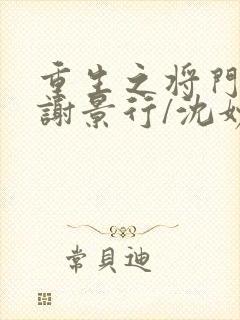 重生之将門
謝景行/沈妙
常貝迪